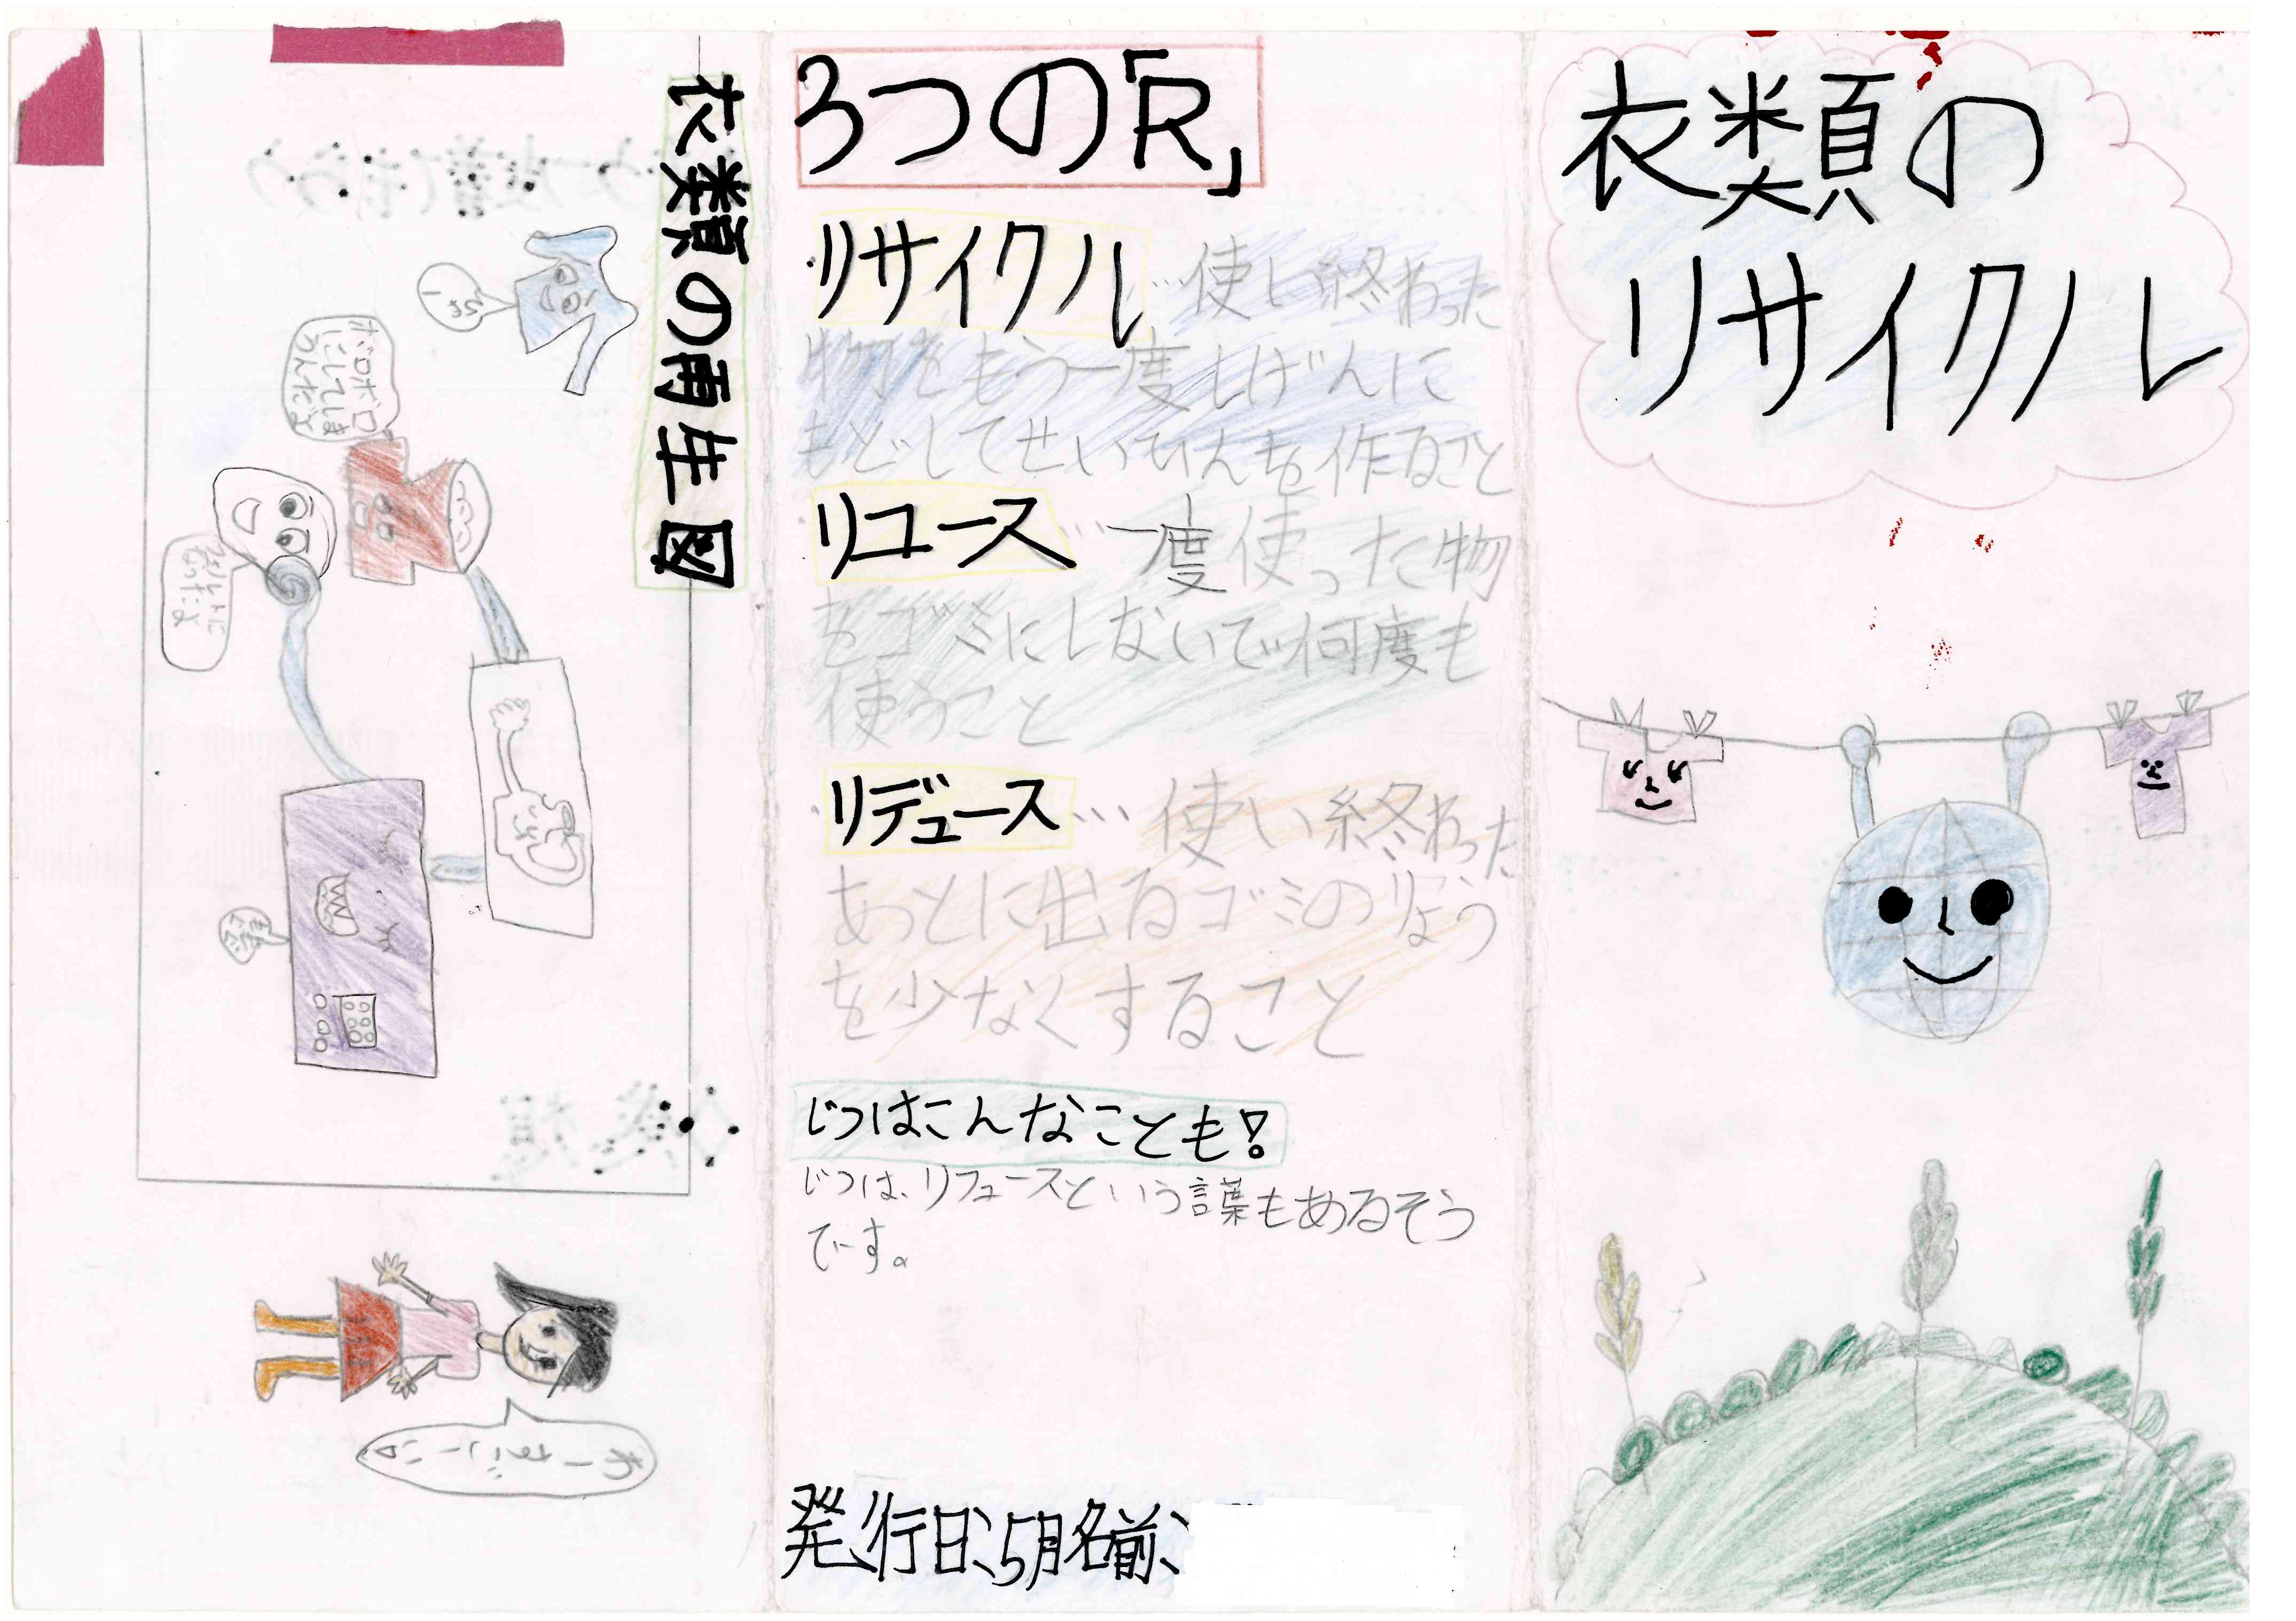 衣類の
リサイクル
3つの「R」
リサイクル…使い終わった
物をもう一度しげんに
もどしてせいひんを作ること
リユース…一度使った物
をゴミにしないで何度も
使うこと
リデュース…使い終わった
あっとに出るゴミのりょう
を少なくすること
じつはこんなことも!
じつは、リフューズという言葉もあるそう
です。
発行日、5月名前、
衣類の再生図
ボロボロ
にしてしま
うんだよ